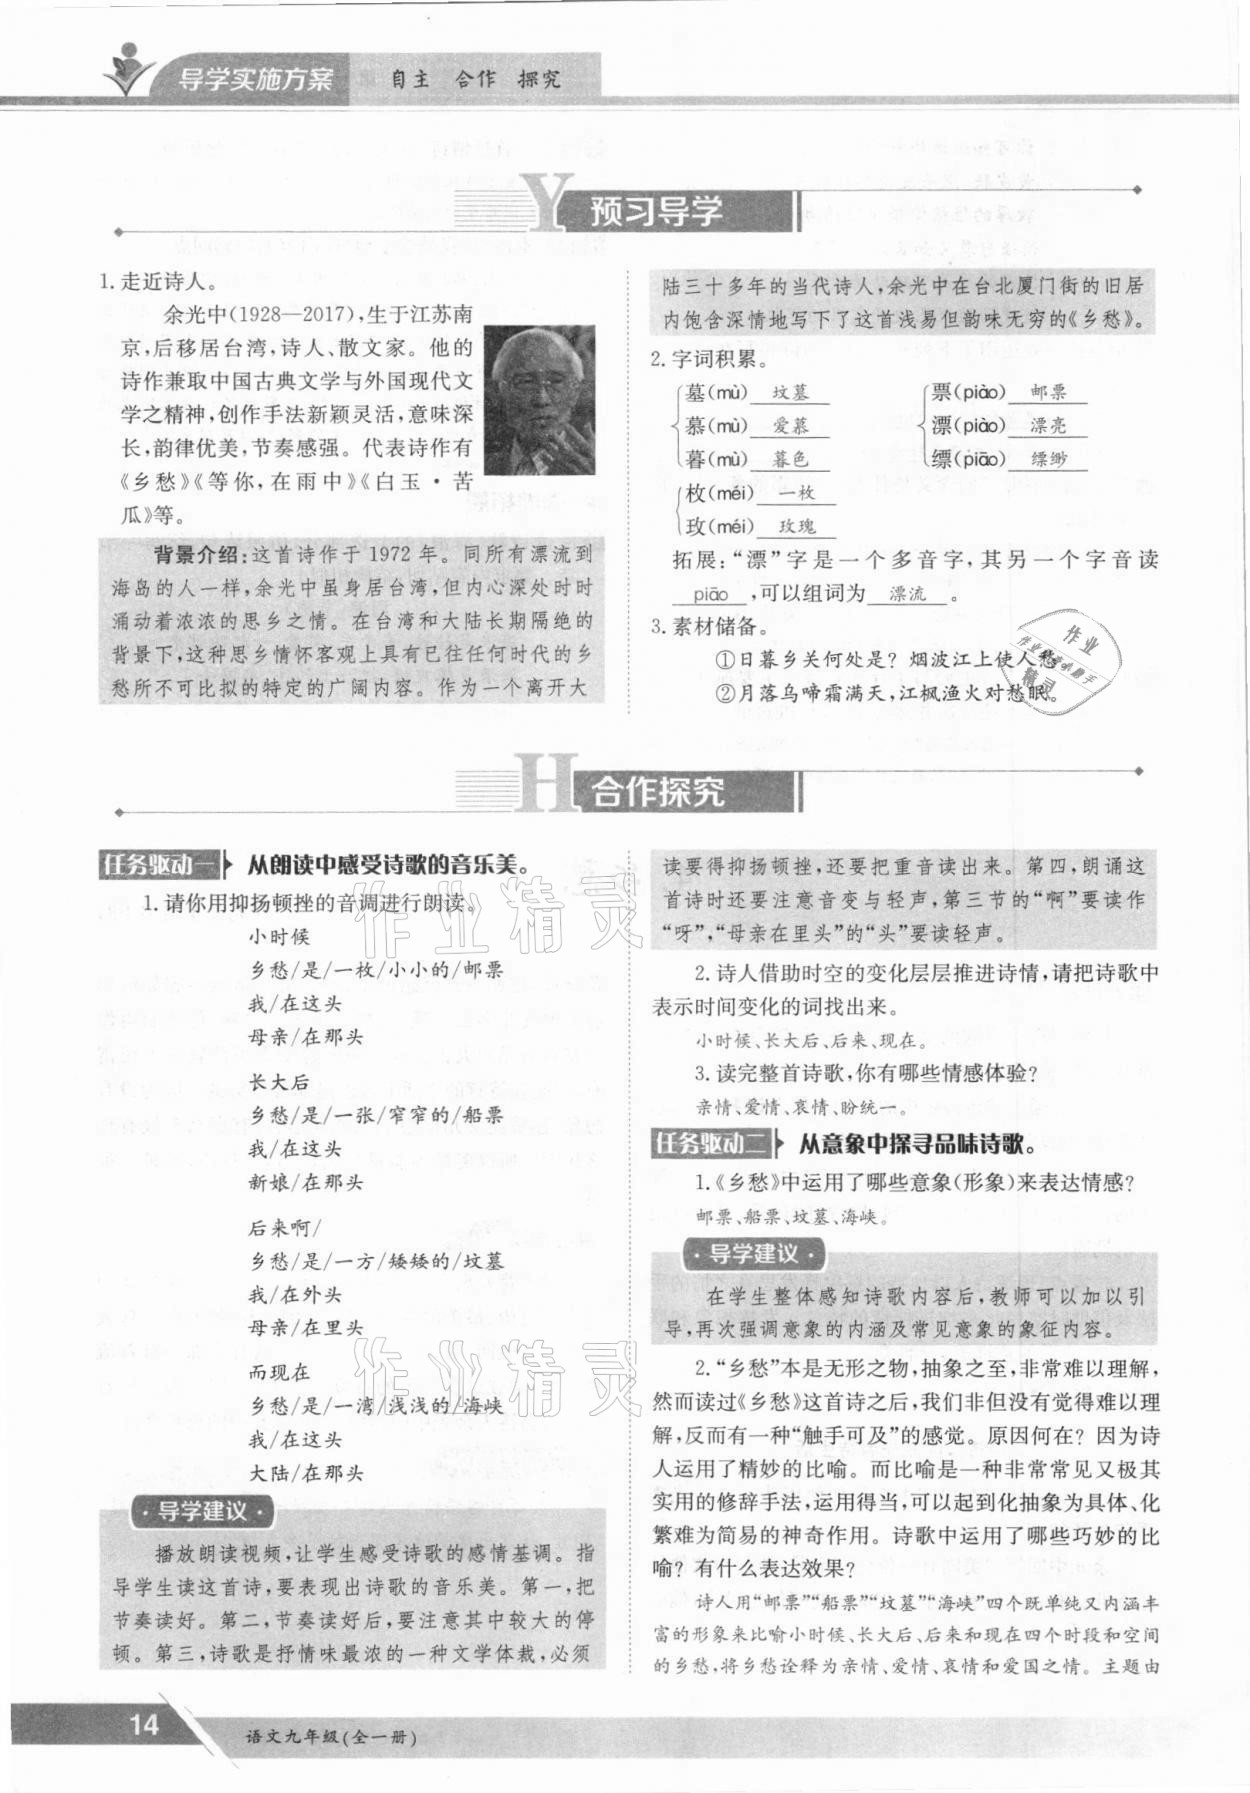 导学实施方案 自主 合作 探究
Y 预习导学
1. 走近诗人。
余光中(1928—2017),生于江苏南
京,后移居台湾,诗人、散文家。他的
诗作兼取中国古典文学与外国现代文
学之精神,创作手法新颖灵活,意味深
长,韵律优美,节奏感强。代表诗作有
《乡愁》《等你,在雨中》《白玉·苦
瓜》等。
背景介绍:这首诗作于 1972 年。同所有漂流到
海岛的人一样,余光中虽身居台湾,但内心深处时时
涌动着浓浓的思乡之情。在台湾和大陆长期隔绝的
背景下,这种思乡情怀客观上具有已往任何时代的乡
愁所不可比拟的特定的广阔内容。作为一个离开大
陆三十多年的当代诗人,余光中在台北厦门街的旧居
内饱含深情地写下了这首浅易但韵味无穷的《乡愁》。
2. 字词积累。
墓(mù) 坟墓 票(piào) 邮票
慕(mù) 爱慕 漂(piào) 漂亮
暮(mù) 暮色 缥(piāo) 缥缈
枚(méi) 一枚
玫(méi) 玫瑰
拓展:“漂”字是一个多音字,其另一个字音读
piāo ,可以组词为 漂流 。
3. 素材储备。
①日暮乡关何处是?烟波江上使人愁。
②月落乌啼霜满天,江枫渔火对愁眠。
作业
作业精灵
精灵
H 合作探究
任务驱动一 从朗读中感受诗歌的音乐美。
1. 请你用抑扬顿挫的音调进行朗读。
小时候
乡愁/是/一枚/小小的/邮票
我/在这头
母亲/在那头
长大后
乡愁/是/一张/窄窄的/船票
我/在这头
新娘/在那头
后来啊/
乡愁/是/一方/矮矮的/坟墓
我/在外头
母亲/在里头
而现在
乡愁/是/一湾/浅浅的/海峡
我/在这头
大陆/在那头
·导学建议·
播放朗读视频,让学生感受诗歌的感情基调。指
导学生读这首诗,要表现出诗歌的音乐美。第一,把
节奏读好。第二,节奏读好后,要注意其中较大的停
顿。第三,诗歌是抒情味最浓的一种文学体裁,必须
读要得抑扬顿挫,还要把重音读出来。第四,朗诵这
首诗时还要注意音变与轻声,第三节的“啊”要读作
“呀”,“母亲在里头”的“头”要读轻声。
2. 诗人借助时空的变化层层推进诗情,请把诗歌中
表示时间变化的词找出来。
小时候、长大后、后来、现在。
3. 读完整首诗歌,你有哪些情感体验?
亲情、爱情、哀情、盼统一。
任务驱动二 从意象中探寻品味诗歌。
1.《乡愁》中运用了哪些意象(形象)来表达情感?
邮票、船票、坟墓、海峡。
·导学建议·
在学生整体感知诗歌内容后,教师可以加以引
导,再次强调意象的内涵及常见意象的象征内容。
2.“乡愁”本是无形之物,抽象之至,非常难以理解,
然而读过《乡愁》这首诗之后,我们非但没有觉得难以理
解,反而有一种“触手可及”的感觉。原因何在?因为诗
人运用了精妙的比喻。而比喻是一种非常常见又极其
实用的修辞手法,运用得当,可以起到化抽象为具体、化
繁难为简易的神奇作用。诗歌中运用了哪些巧妙的比
喻?有什么表达效果?
诗人用“邮票”“船票”“坟墓”“海峡”四个既单纯又内涵丰
富的形象来比喻小时候、长大后、后来和现在四个时段和空间
的乡愁,将乡愁诠释为亲情、爱情、哀情和爱国之情。主题由
作业精灵
作业精灵
14 语文九年级(全一册)